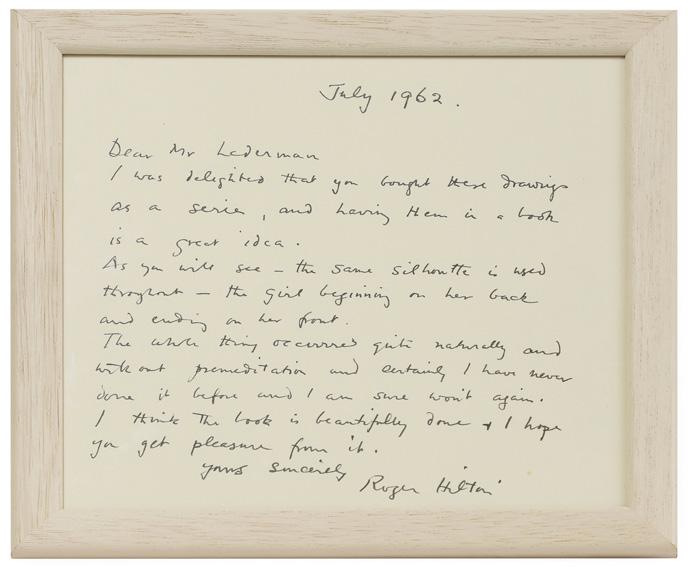 July 1962.
Dear Mr Lederman
I was delighted that you bought these drawings
as a series, and having them in a book
is a great idea.
As you will see – the same silhoutte is used
throghout – the girl beginning on her back
and ending on her front.
The whole thing occurred quite naturally and
without premeditation and certainly I have never
done it before and I am sure won't again.
I think the book is beautifully done & I hope
you get pleasure from it.
yours sincerely
Roger Hilton